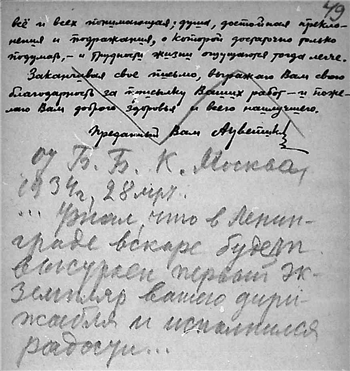 49
всё и всех понимающая; душа, достойная прекло-
нения и подражания, о которой достаточно только
подумать,- и трудности жизни ощущаются тогда легче.
Заканчивая свое письмо, выражаю Вам свою
благодарность за присылку Ваших работ - и поже-
лаю Вам доброго здоровья и всего наилучшего.
Преданный Вам
от Б. Б. К. Москва
1934г, 28 мрт.
... Узнал, что в Ленин-
граде вскоре будет
выпущен первый эк-
земпляр вашего дири-
жабля и исполнился
радости...